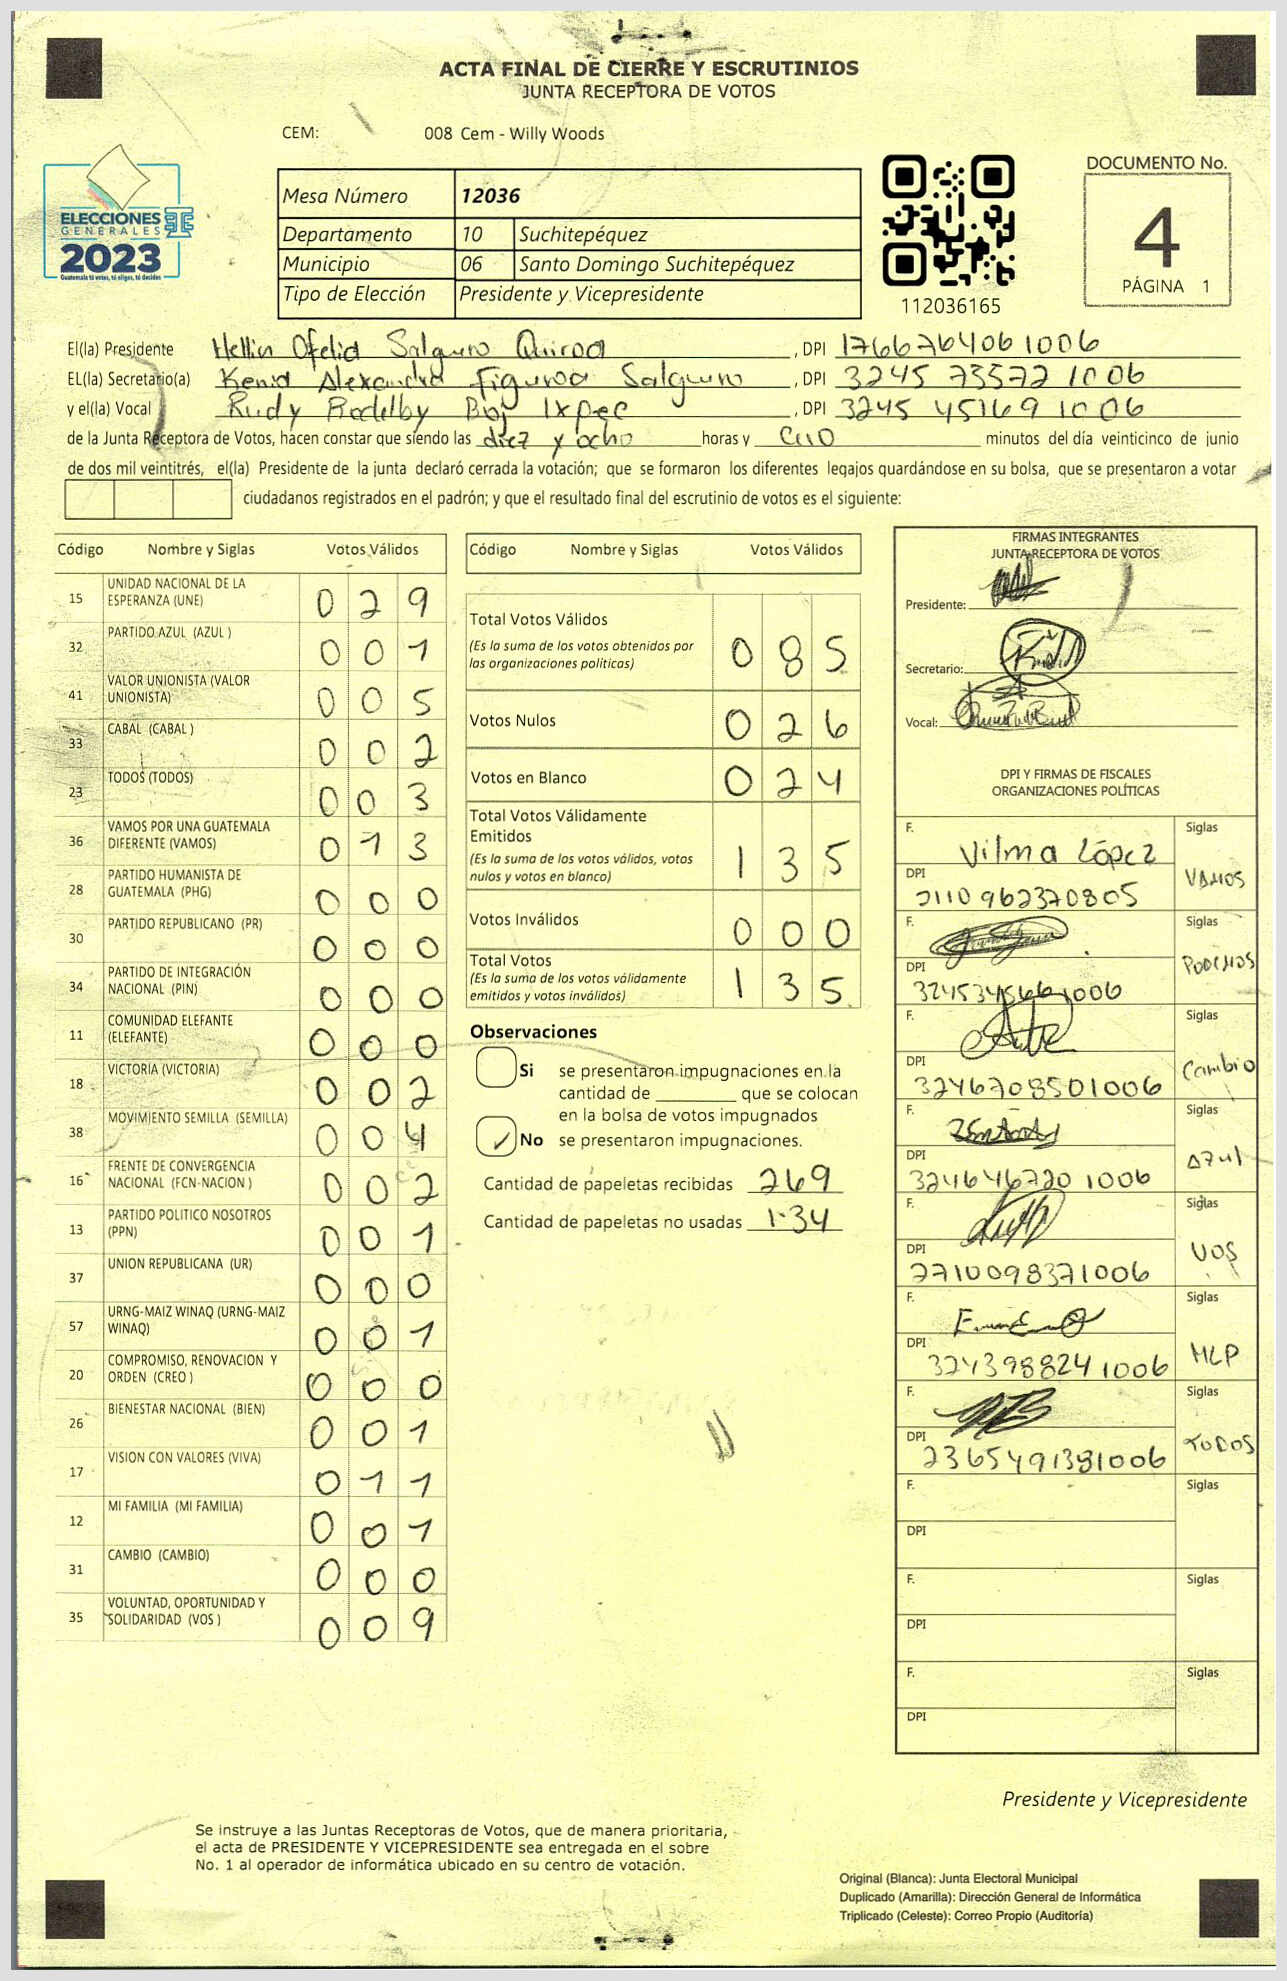 ACTA FINAL DE CIERRE Y ESCRUTINIOS
JUNTA RECEPTORA DE VOTOS
CEM: 008 Cem - Willy Woods
ELECCIONES
GENERALES
2023
Guatemala tú votas, tú eliges, tú decides
Mesa Número 12036
Departamento 10 Suchitepéquez
Municipio 06 Santo Domingo Suchitepéquez
Tipo de Elección Presidente y Vicepresidente
112036165
DOCUMENTO No.
4
PÁGINA 1
El(la) Presidente Hellin Ofelia Salguero Quiroa, DPI 1766764061006
EL(la) Secretario(a) Kenia Alexandra Figueroa Salguero, DPI 3245 73572 1006
y el(la) Vocal Rudy Rodelby Boj Ixpec, DPI 3245 45169 1006
de la Junta Receptora de Votos, hacen constar que siendo las diez y ocho horas y cero minutos del día veinticinco de junio
de dos mil veintitrés, el(la) Presidente de la junta declaró cerrada la votación; que se formaron los diferentes legajos quardándose en su bolsa, que se presentaron a votar
ciudadanos registrados en el padrón; y que el resultado final del escrutinio de votos es el siguiente:
Código Nombre y Siglas Votos Válidos
15 UNIDAD NACIONAL DE LA ESPERANZA (UNE) 0 2 9
32 PARTIDO AZUL (AZUL ) 0 0 1
41 VALOR UNIONISTA (VALOR UNIONISTA) 0 0 5
33 CABAL (CABAL ) 0 0 2
23 TODOS (TODOS) 0 0 3
36 VAMOS POR UNA GUATEMALA DIFERENTE (VAMOS) 0 1 3
28 PARTIDO HUMANISTA DE GUATEMALA (PHG) 0 0 0
30 PARTIDO REPUBLICANO (PR) 0 0 0
34 PARTIDO DE INTEGRACIÓN NACIONAL (PIN) 0 0 0
11 COMUNIDAD ELEFANTE (ELEFANTE) 0 0 0
18 VICTORIA (VICTORIA) 0 0 2
38 MOVIMIENTO SEMILLA (SEMILLA) 0 0 4
16 FRENTE DE CONVERGENCIA NACIONAL (FCN-NACION ) 0 0 2
13 PARTIDO POLITICO NOSOTROS (PPN) 0 0 1
37 UNION REPUBLICANA (UR) 0 0 0
57 URNG-MAIZ WINAQ (URNG-MAIZ WINAQ) 0 0 1
20 COMPROMISO, RENOVACION Y ORDEN (CREO ) 0 0 0
26 BIENESTAR NACIONAL (BIEN) 0 0 1
17 VISION CON VALORES (VIVA) 0 1 1
12 MI FAMILIA (MI FAMILIA) 0 0 1
31 CAMBIO (CAMBIO) 0 0 0
35 VOLUNTAD, OPORTUNIDAD Y SOLIDARIDAD (VOS ) 0 0 9
Código Nombre y Siglas Votos Válidos
Total Votos Válidos
(Es la suma de los votos obtenidos por las organizaciones políticas) 0 8 5
Votos Nulos 0 2 6
Votos en Blanco 0 2 4
Total Votos Válidamente Emitidos
(Es la suma de los votos válidos, votos nulos y votos en blanco) 1 3 5
Votos Inválidos 0 0 0
Total Votos
(Es la suma de los votos válidamente emitidos y votos inválidos) 1 3 5
Observaciones
Si se presentaron impugnaciones en la
cantidad de ________ que se colocan
en la bolsa de votos impugnados
✓ No se presentaron impugnaciones.
Cantidad de papeletas recibidas 269
Cantidad de papeletas no usadas 134
FIRMAS INTEGRANTES
JUNTA RECEPTORA DE VOTOS
Presidente:
Secretario:
Vocal:
DPI Y FIRMAS DE FISCALES
ORGANIZACIONES POLÍTICAS
F. Vilma López Siglas
DPI 2110 962370805 VAMOS
F. Siglas
DPI 3245345661006 PODEMOS
F. Siglas
DPI 3246708501006 Cambio
F. Siglas
DPI 324646720 1006 Azul
F. Siglas
DPI 2710098371006 VOS
F. Siglas
DPI 324398824 1006 MLP
F. Siglas
DPI 2365491381006 TODOS
F. Siglas
DPI
F. Siglas
DPI
F. Siglas
DPI
Presidente y Vicepresidente
Se instruye a las Juntas Receptoras de Votos, que de manera prioritaria,
el acta de PRESIDENTE Y VICEPRESIDENTE sea entregada en el sobre
No. 1 al operador de informática ubicado en su centro de votación.
Original (Blanca): Junta Electoral Municipal
Duplicado (Amarilla): Dirección General de Informática
Triplicado (Celeste): Correo Propio (Auditoría)